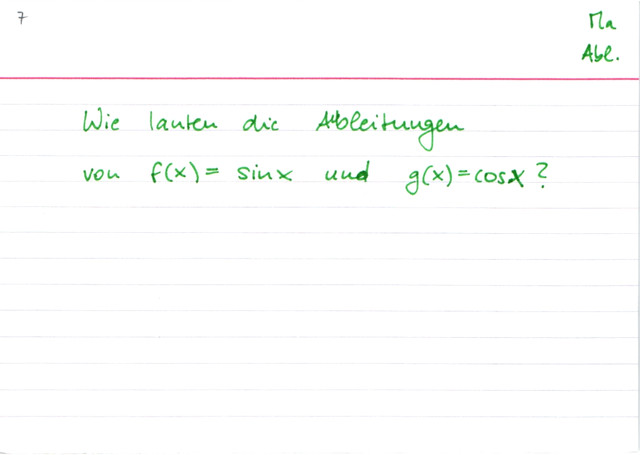 7
Ma
Abl.
Wie lauten die Ableitungen
von f(x) = sinx und g(x) = cosx ?